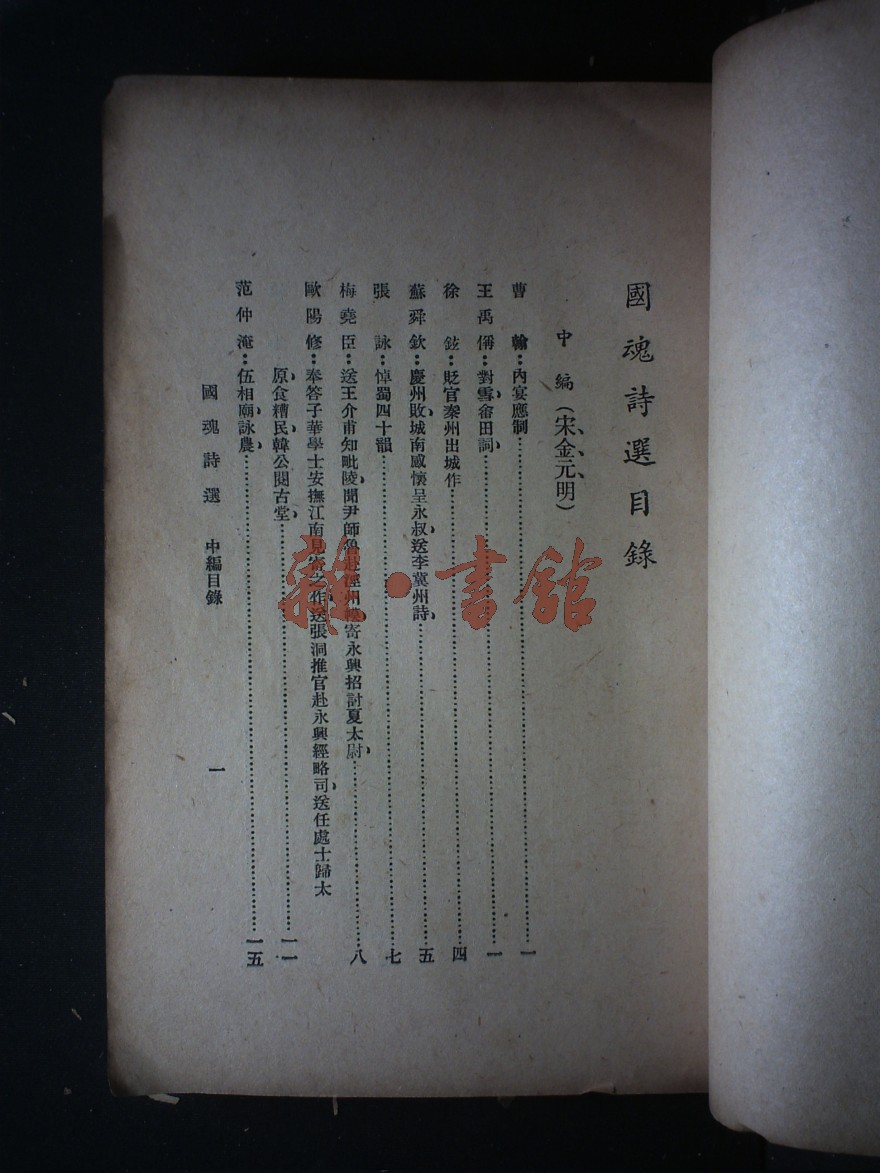 國魂詩選目錄
中編（宋、金、元、明）
曹翰：內宴應制……一
王禹偁：對雪、畬田詞、……一
徐鉉：貶官秦州出城作……四
蘇舜欽：慶州敗、城南感懷呈永叔、送李冀州詩、……五
張詠：悼蜀四十韻……七
梅堯臣：送王介甫知毗陵、聞尹師魯赴涇州幕、寄永興招討夏太尉、……八
歐陽修：奉答子華學士安撫江南見寄之作、送張洞推官赴永興經略司、送任處士歸太
原、食糟民、韓公閱古堂、……一一
范仲淹：伍相廟、詠農、……一五
國魂詩選 中編目錄 一
雜·書館